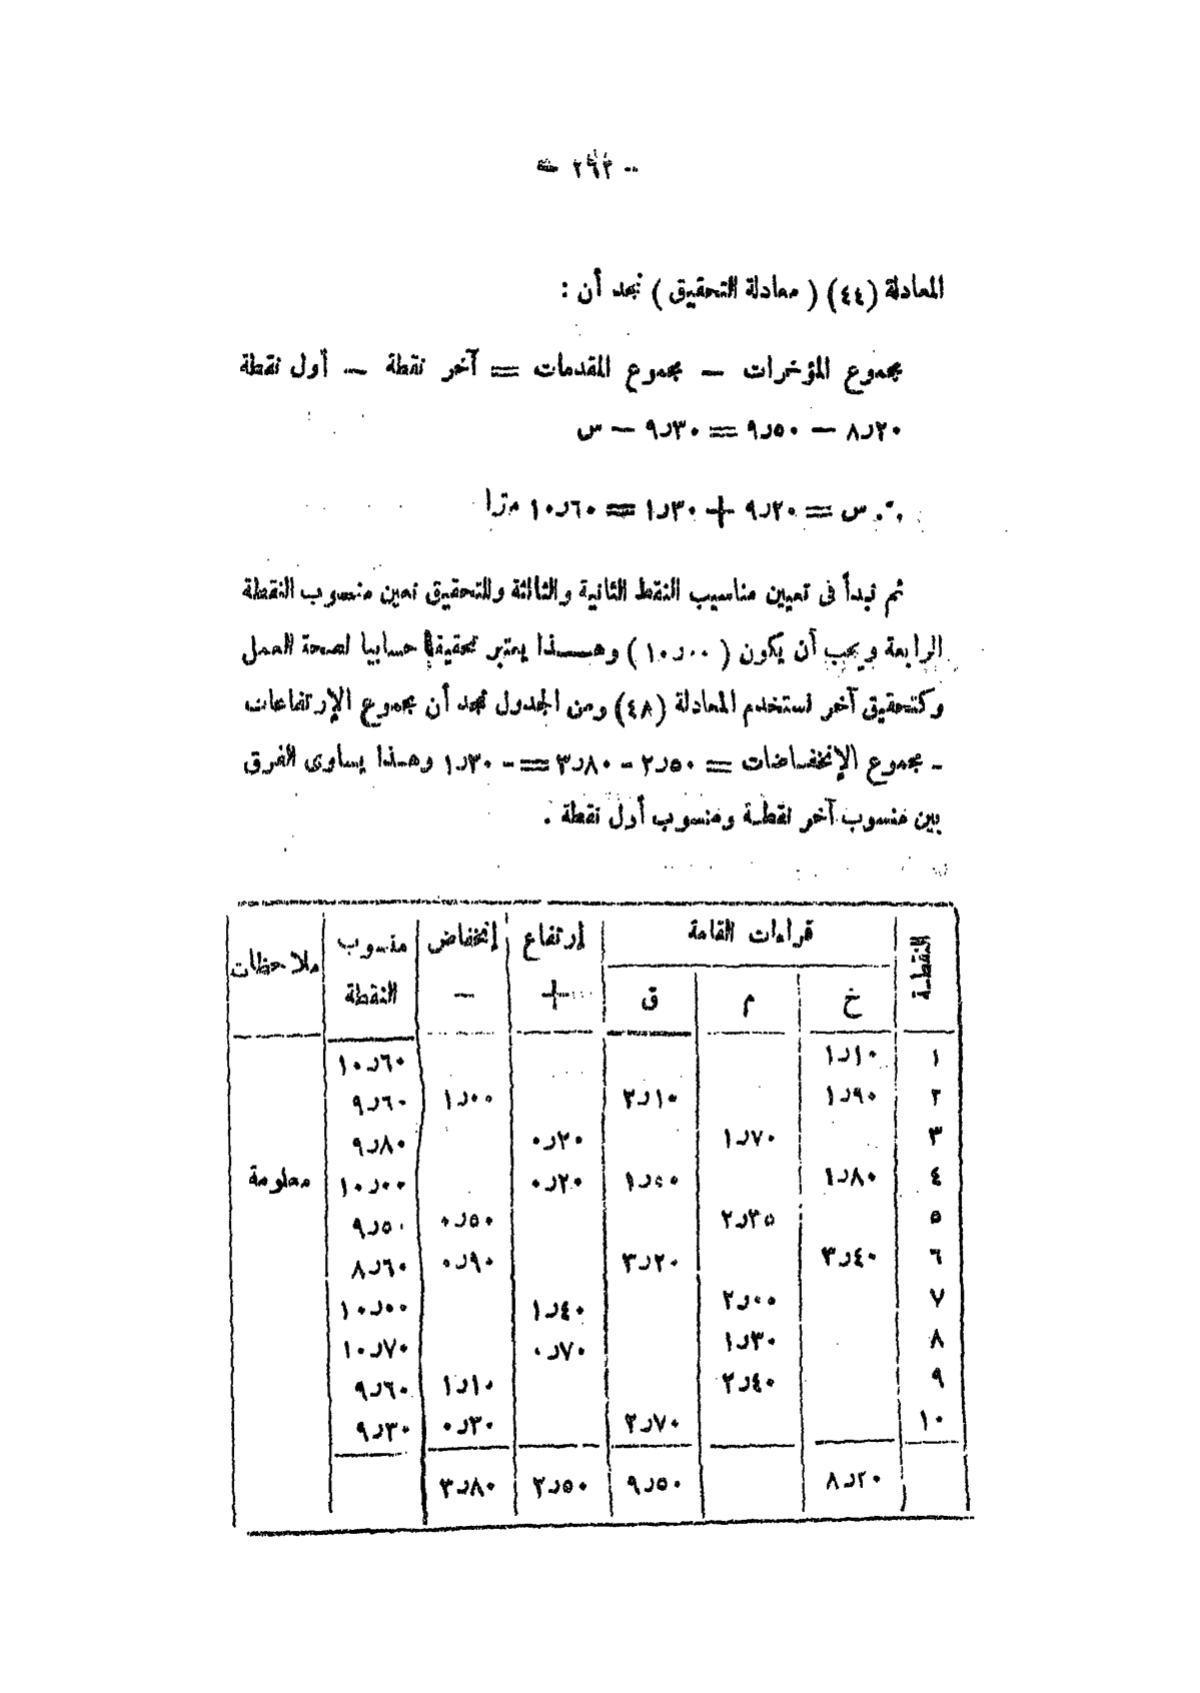 - ٢٩٣ -
المعادلة (٤٤) ( معادلة التحقيق ) نجد أن :
مجموع المؤخرات – مجموع المقدمات = آخر نقطة – أول نقطة
٨٫٢٠ – ٩٫٥٠ = ٩٫٣٠ – س
∴ س = ٩٫٢٠ + ١٫٣٠ = ١٠٫٦٠ مترا
ثم نبدأ فى تعيين مناسيب النقط الثانية والثالثة وللتحقيق نعين منسوب النقطة
الرابعة ويجب أن يكون ( ١٠٫٠٠ ) وهـذا يعتبر تحقيقا حسابيا لصحة العمل
وكتحقيق آخر نستخدم المعادلة (٤٨) ومن الجدول نجد أن مجموع الإرتفاعات
- مجموع الإنخفاضات = ٢٫٥٠ - ٣٫٨٠ = - ١٫٣٠ وهـذا يساوى الفرق
بين منسوب آخر نقطـة ومنسوب أول نقطة .
النقطـة قراءات القامة إرتفاع إنخفاض منسوب ملاحظات
خ م ق + – النقطة
١ ١٫١٠ ١٠٫٦٠
٢ ١٫٩٠ ٢٫١٠ ١٫٠٠ ٩٫٦٠
٣ ١٫٧٠ ٠٫٢٠ ٩٫٨٠
٤ ١٫٨٠ ١٫٥٠ ٠٫٢٠ ١٠٫٠٠ معلومة
٥ ٢٫٣٥ ٠٫٥٠ ٩٫٥٠
٦ ٣٫٤٠ ٣٫٢٠ ٠٫٩٠ ٨٫٦٠
٧ ٢٫٠٠ ١٫٤٠ ١٠٫٠٠
٨ ١٫٣٠ ٠٫٧٠ ١٠٫٧٠
٩ ٢٫٤٠ ١٫١٠ ٩٫٦٠
١٠ ٢٫٧٠ ٠٫٣٠ ٩٫٣٠
٨٫٢٠ ٩٫٥٠ ٢٫٥٠ ٣٫٨٠